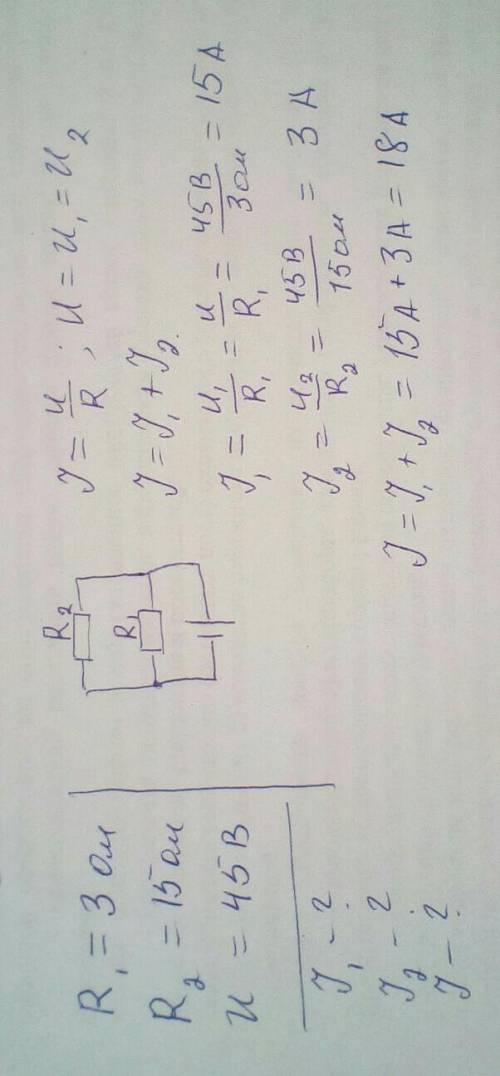 R₁ = 3 Ом
R₂ = 15 Ом
U = 45 В
J₁ - ?
J₂ - ?
J - ?
R₂
R₁
J = U/R ; U = U₁ = U₂
J = J₁ + J₂
J₁ = U₁/R₁ = U/R₁ = 45В/3 Ом = 15 А
J₂ = U₂/R₂ = 45В/15 Ом = 3 А
J = J₁ + J₂ = 15А + 3А = 18А